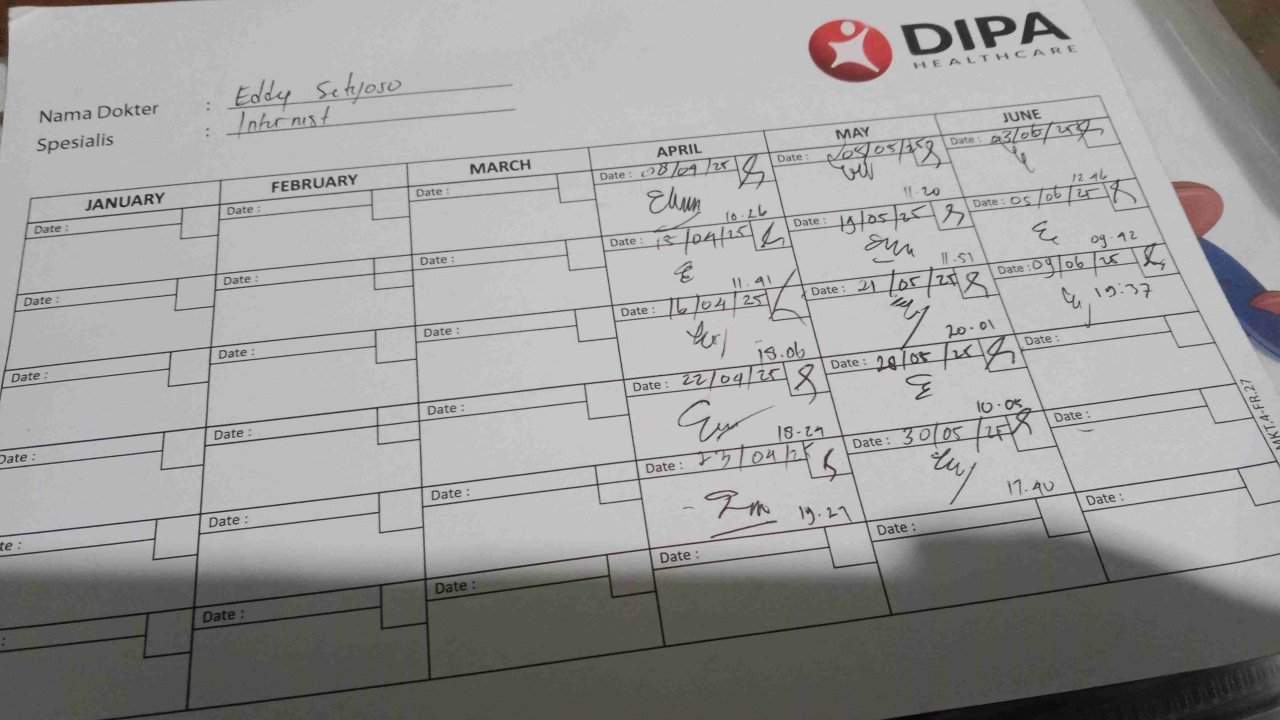 DIPA
HEALTHCARE
Nama Dokter : Eddy Setyoso
Spesialis : Internist
JANUARY FEBRUARY MARCH APRIL MAY JUNE
Date : Date : Date : Date : 08/04/25 Date : 05/05/25 Date : 03/06/25
10.26 11.20 12.46
Date : Date : Date : Date : 15/04/25 Date : 19/05/25 Date : 05/06/25
11.41 11.51 09.42
Date : Date : Date : Date : 16/04/25 Date : 21/05/25 Date : 09/06/25
18.06 20.01 19:37
Date : Date : Date : Date : 22/04/25 Date : 28/05/25 Date :
18.29 10.05
Date : Date : Date : Date : 23/04/25 Date : 30/05/25 Date :
19.27 17.40
Date : Date : Date : Date : Date :
MKT-4-FR-27